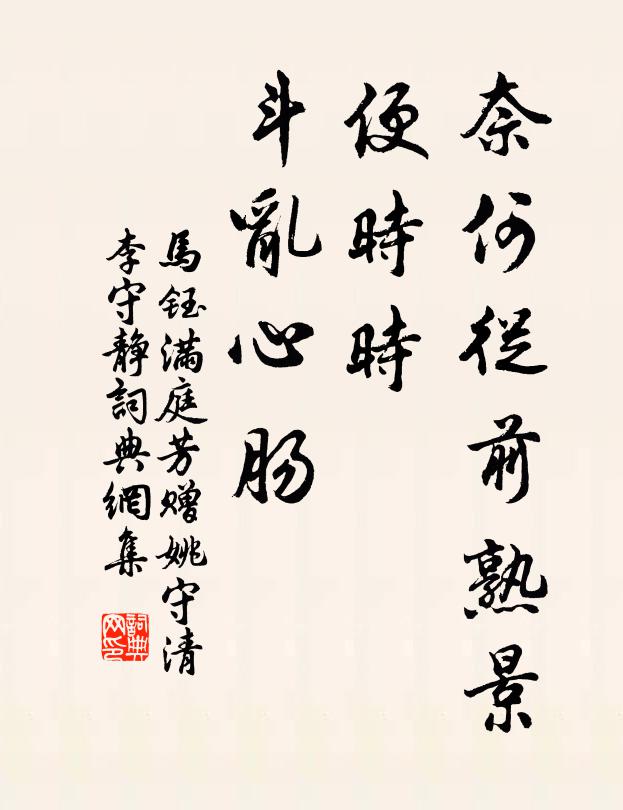 奈何從前熟景
便時時
斗亂心肠
馬鈺满庭芳赠姚守清
李守靜詞典網集
詞典网印